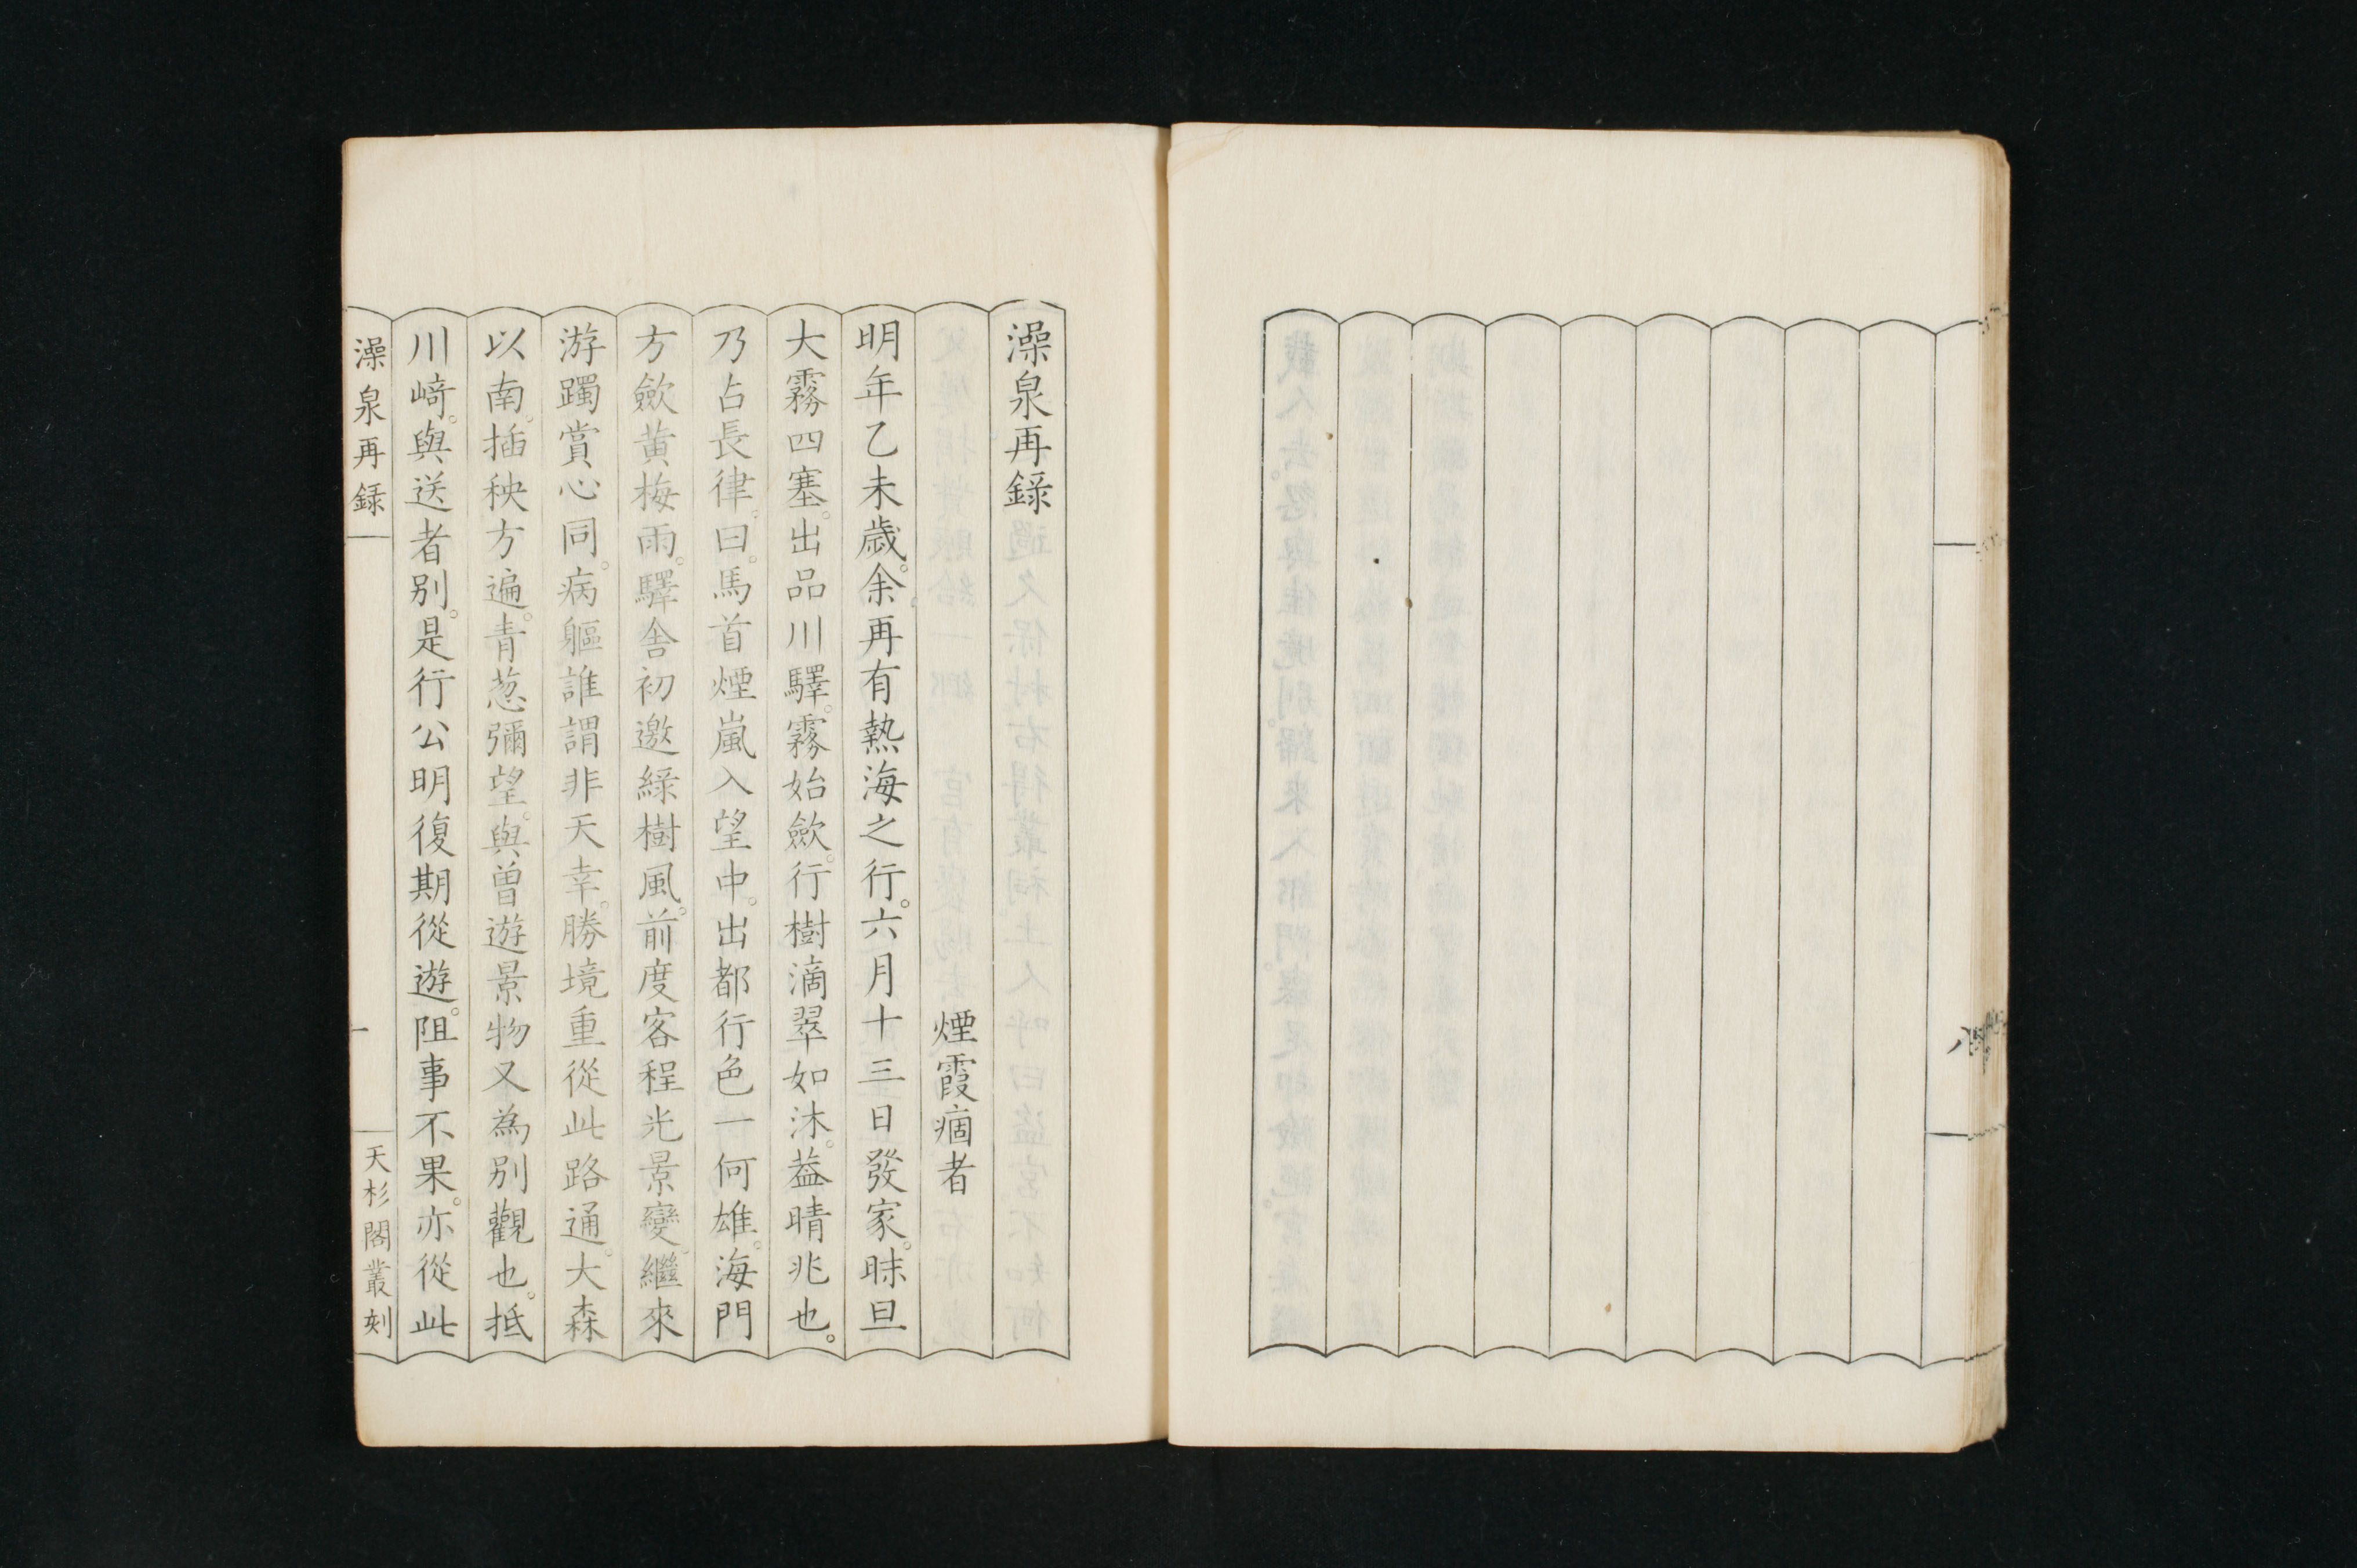 八
澡泉再錄
煙霞痼者
明年乙未歲。余再有熱海之行。六月十三日發家。昧旦
大霧四塞。出品川驛。霧始歛。行樹滴翠如沐。葢晴兆也。
乃占長律。曰。馬首煙嵐入望中。出都行色一何雄。海門
方歛黃梅雨。驛舍初邀綠樹風。前度客程光景變。繼來
游躅賞心同。病軀誰謂非天幸。勝境重從此路通。大森
以南。插秧方遍。青葱彌望。與曾遊景物又為別觀也。抵
川﨑。與送者別。是行公明復期從遊。阻事不果。亦從此
澡泉再錄
一
天杉閣叢刻